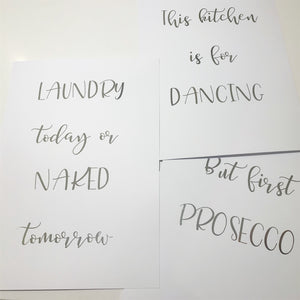 LAUNDRY
today or
NAKED
tomorrow
This kitchen
is for
DANCING
But first
PROSECCO